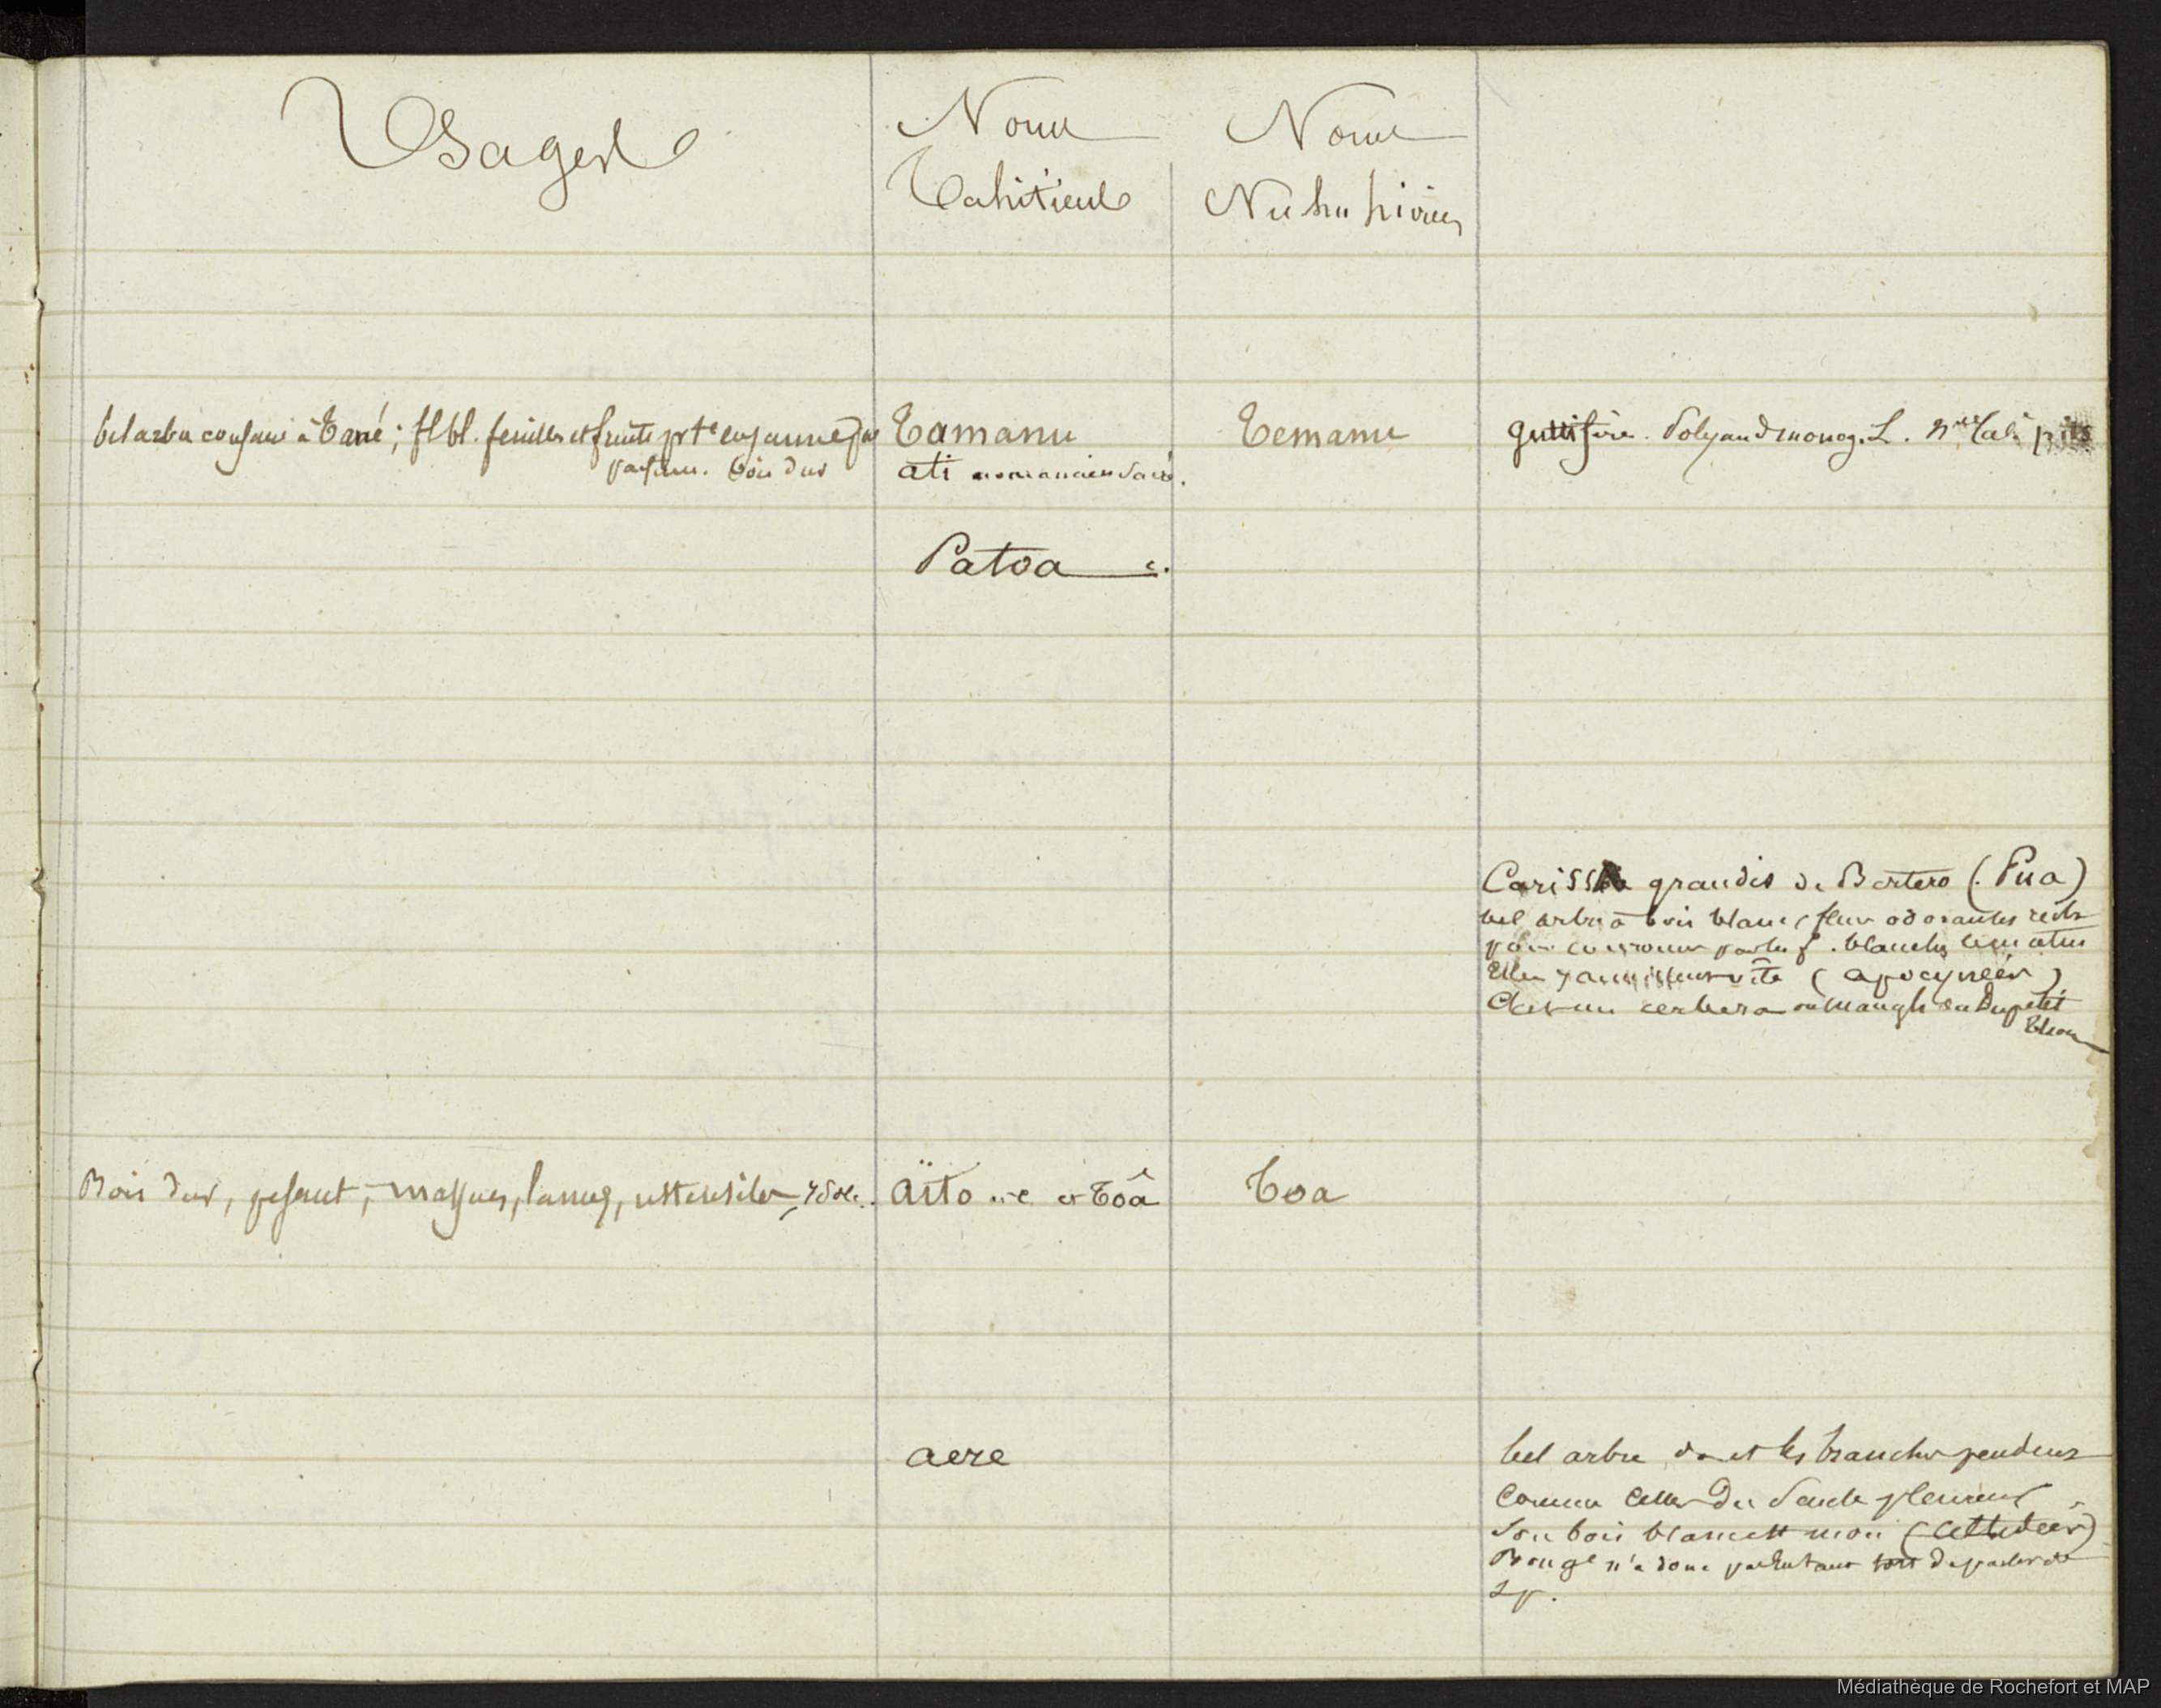 Usages
Noms
Tahitiens
Noms
Nuhu hiviens
bel arbre consacré à Tané; fl bl. feuilles et fruits
parfum. bois dur
Tamanu
ati nom ancien sacré.
Temanu
guttifère. Polyand monog. L.
Patoa
Carissa grandis de Bertero (Pua)
bel arbre à bois blanc, fleurs odorantes
blanches
jaunissent vite (apocynées)
C'est un cerbera ou manghas du Dupetit
Thouars
Bois dur, pesant, massues, lances, ustensiles, idole.
Aïto et Toâ
Toa
aere
bel arbre dont les branches pendent
comme celles du Saule pleureur
Son bois blanc et mou (Celtidées)
n'a donc pas tort de parler de
2 p.
Médiathèque de Rochefort et MAP